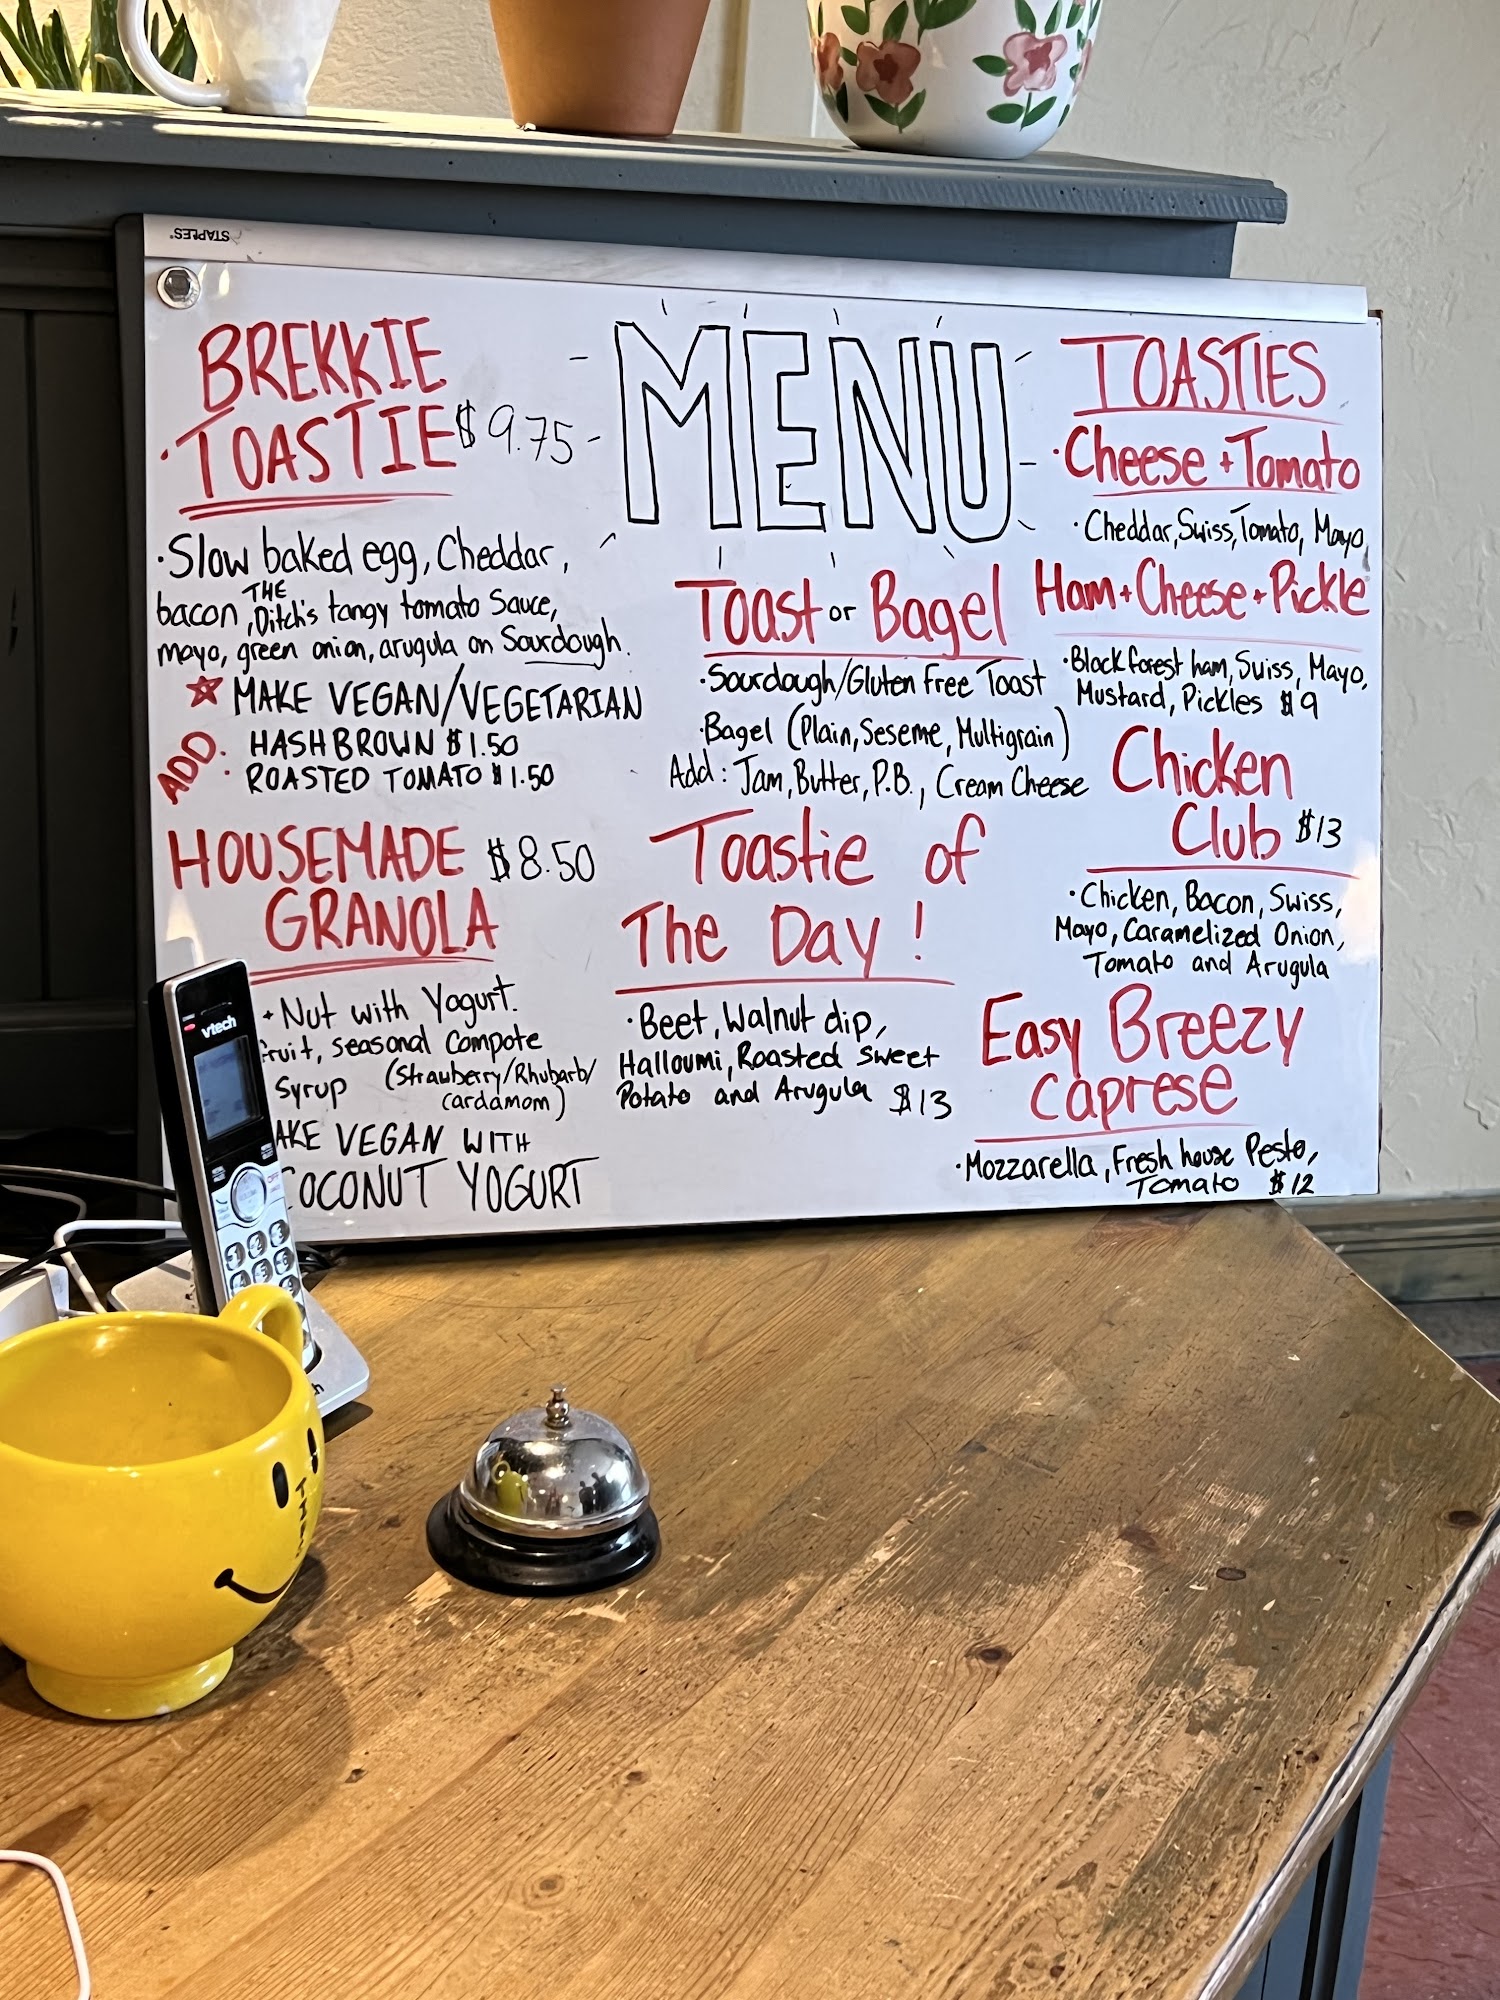 STAPLES
BREKKIE
· TOASTIE $9.75
· Slow baked egg, Cheddar,
bacon, THE Ditch's tangy tomato Sauce,
mayo, green onion, arugula on Sourdough.
MAKE VEGAN/VEGETARIAN
ADD · HASHBROWN $1.50
· ROASTED TOMATO $1.50
HOUSEMADE $8.50
GRANOLA
+ Nut with Yogurt.
fruit, seasonal Compote
syrup (Strawberry/Rhubarb/
cardamom)
AKE VEGAN WITH
OCONUT YOGURT
MENU
Toast or Bagel
· Sourdough/Gluten Free Toast
· Bagel (Plain, Seseme, Multigrain)
Add: Jam, Butter, P.B., Cream Cheese
Toastie of
The Day!
· Beet, Walnut dip,
Halloumi, Roasted Sweet
Potato and Arugula $13
TOASTIES
· Cheese + Tomato
· Cheddar, Swiss, Tomato, Mayo
Ham + Cheese + Pickle
· Black forest ham, Swiss, Mayo,
Mustard, Pickles $9
Chicken
Club $13
· Chicken, Bacon, Swiss,
Mayo, Caramelized Onion,
Tomato and Arugula
Easy Breezy
Caprese
· Mozzarella, Fresh house Pesto,
Tomato $12
vtech